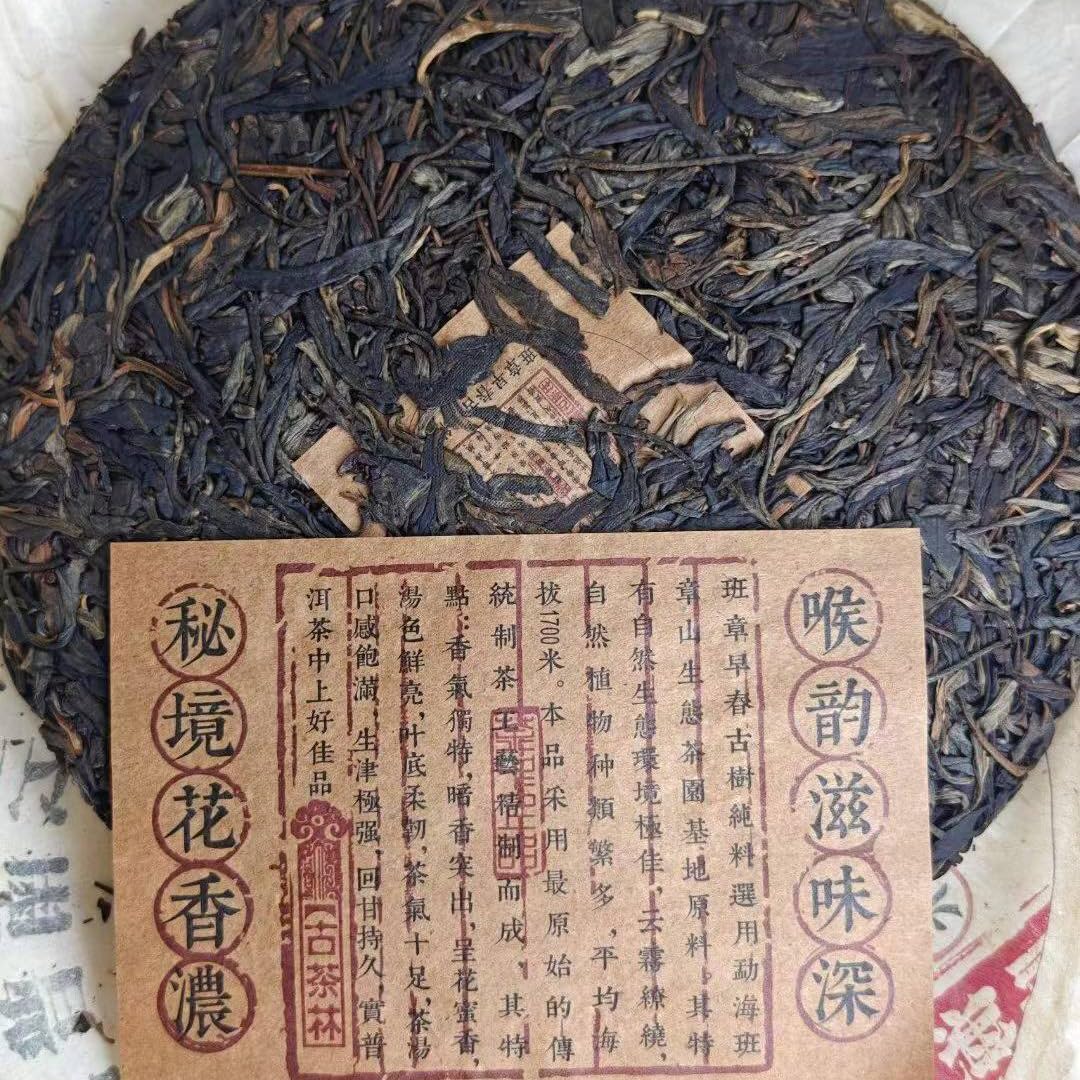 喉韵滋味深
班章早春古樹純料選用勐海班
章山生態茶園基地原料。其特
有自然生態環境極佳，云霧繚繞，
自然植物种類繁多，平均海
拔1700米。本品采用最原始的傳
統制茶工藝精制而成，其特
點：香氣獨特，暗香突出，呈花蜜香，
湯色鮮亮，叶底柔韌，茶氣十足，茶湯
口感飽滿，生津極强，回甘持久，實普
洱茶中上好佳品
古茶林
秘境花香濃
班章古樹